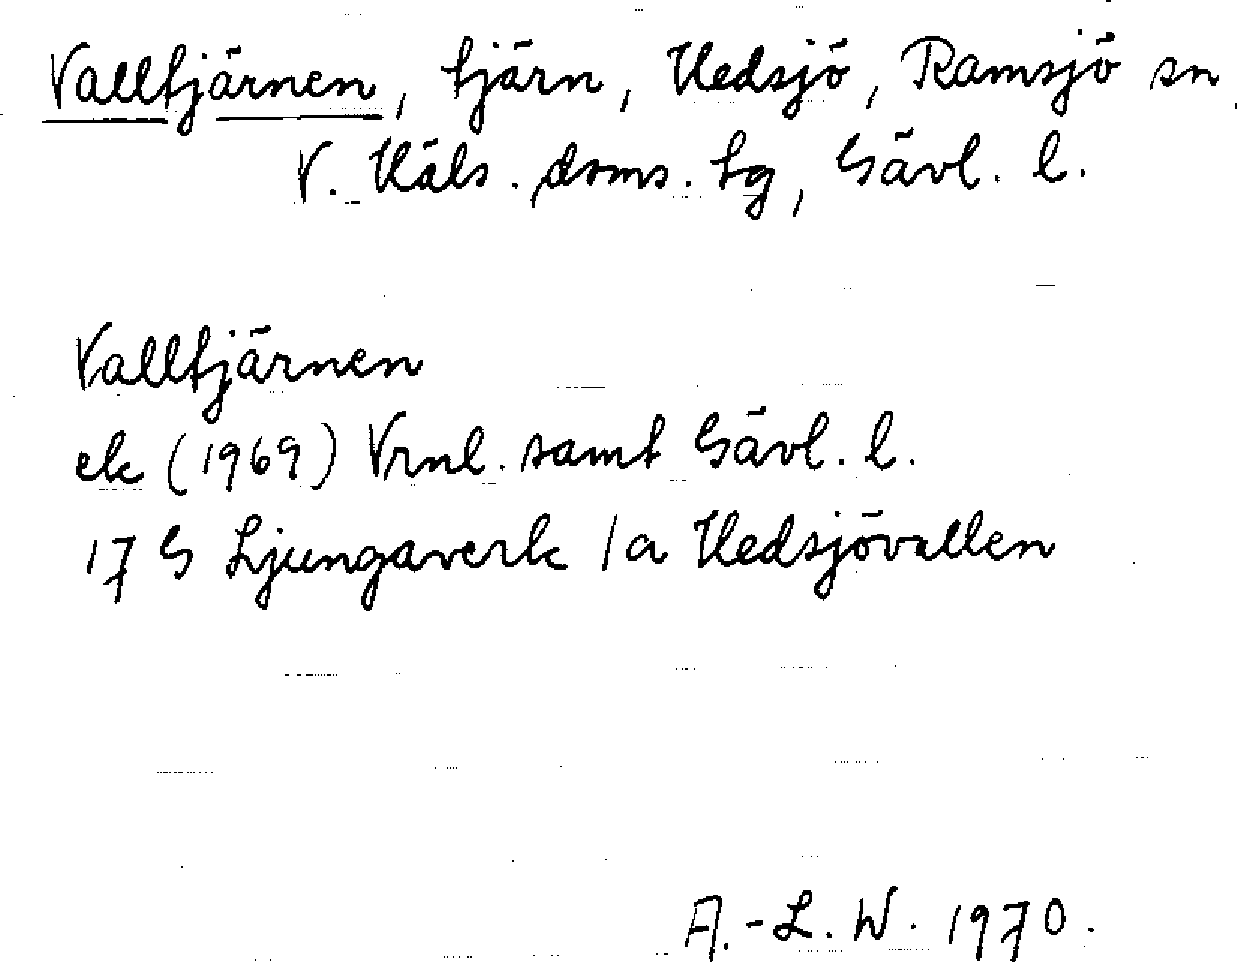 Valltjärnen, tjärn, Hedsjö, Ramsjö sn
V. Häls. doms. tg, Gävl. l.
Valltjärnen
ek (1969) Vrnl. samt Gävl. l.
17 G Ljungaverk 1a Hedsjövallen
A.-L. W. 1970.